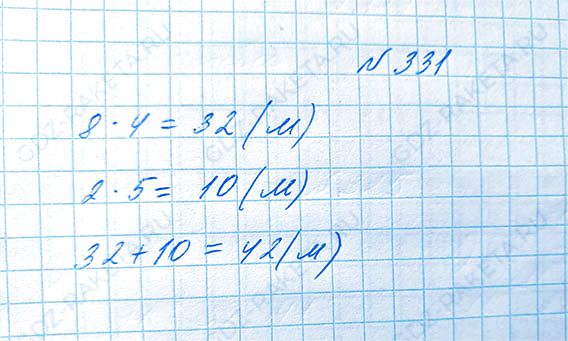 № 331
8 · 4 = 32 (м)
2 · 5 = 10 (м)
32 + 10 = 42 (м)
GDZ-RAKETA.RU
GDZ-RAKETA.RU
GDZ-RAKETA.RU
GDZ-RAKETA.RU
GDZ-RAKETA.RU
GDZ-RAKETA.RU